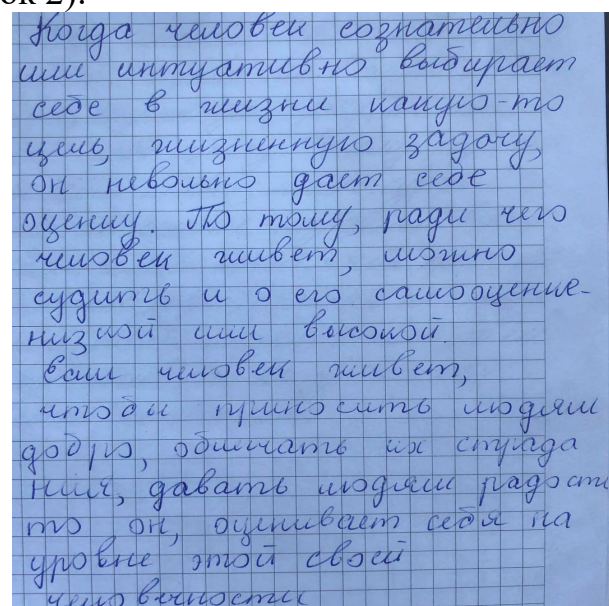 ок 2).
Когда человек сознательно
или интуативно выбирает
себе в жизни какую-то
цель, жизненную задачу,
он невольно дает себе
оценку. По тому, ради чего
человек живет, можно
судить и о его самооценке-
низкой или высокой.
Если человек живет,
чтобы приносить людям
добро, обличать их страда
ния, давать людям радость
то он, оценивает себя на
уровне этой своей
человечности